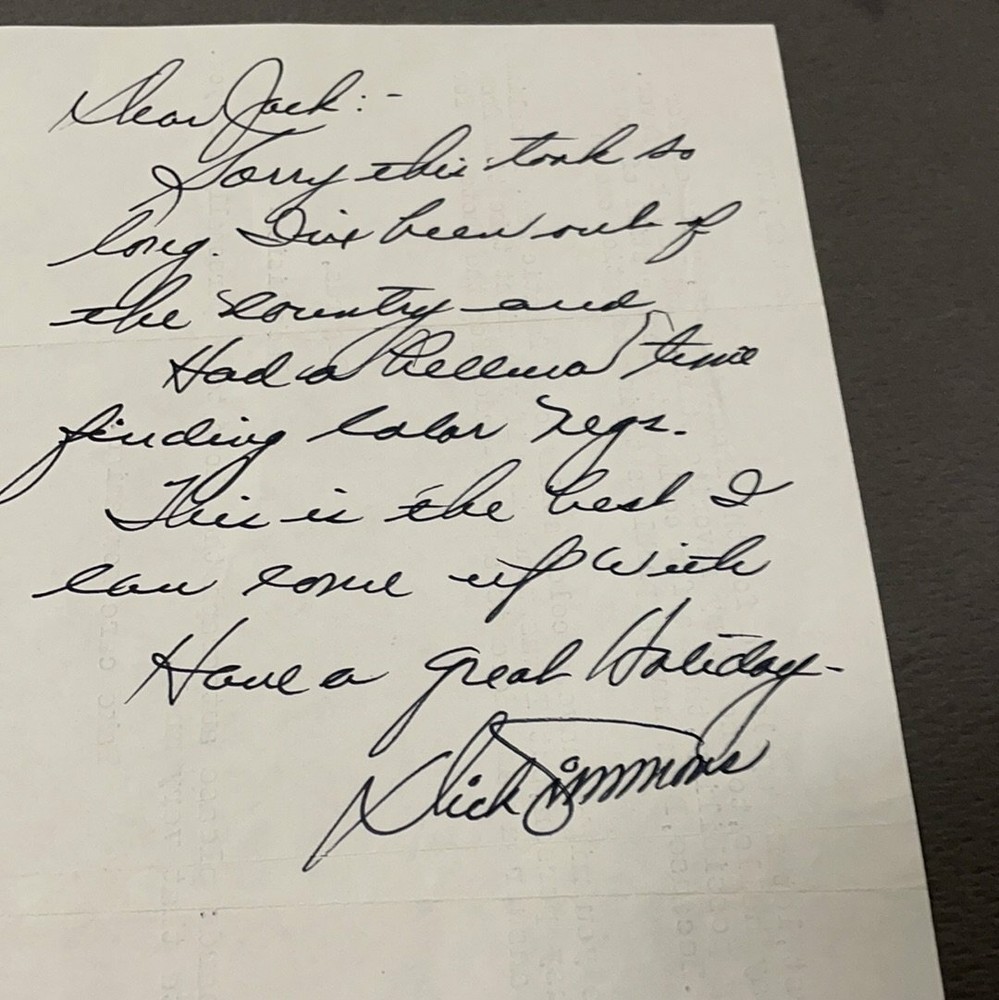 Dear Jack:-
Sorry this took so
long. I've been out of
the country and
Had a helluva time
finding color negs.
This is the best I
can come up with
Have a great Holiday-
Dick Simmons